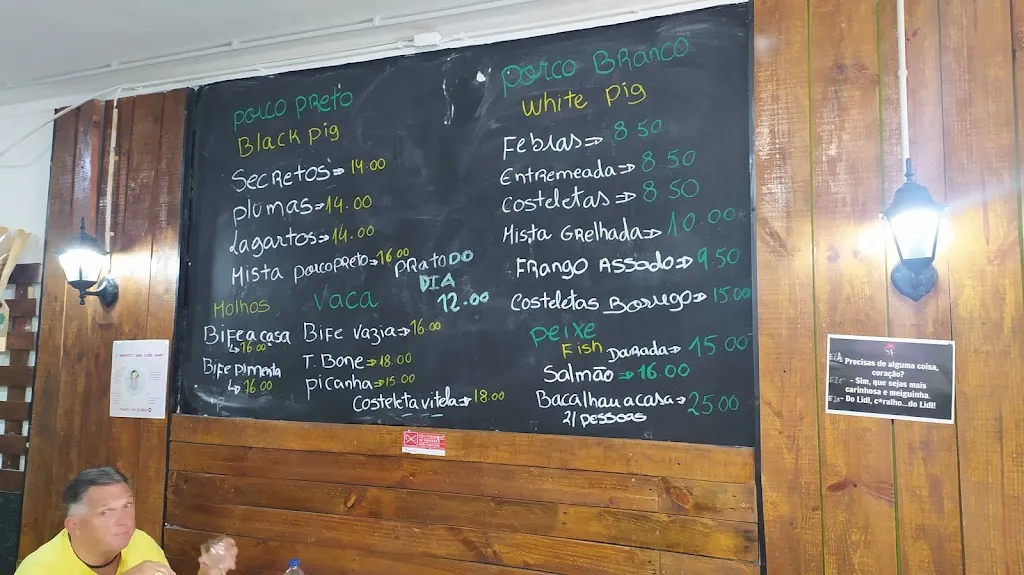 Porco Preto
Black Pig
Secretos⇒14.00
Plumas⇒14.00
Lagartos⇒14.00
Mista porco preto⇒16.00
Prato do
Dia
12.00
Molhos
Bife a casa
↳16.00
Bife Pimenta
↳16.00
Vaca
Bife vazia⇒16.00
T. Bone⇒18.00
Picanha⇒15.00
Costeleta vitela⇒18.00
Porco Branco
White Pig
Febras⇒8.50
Entremeada⇒8.50
Costeletas⇒8.50
Mista Grelhada⇒10.00
Frango Assado⇒9.50
Costeletas Borrego⇒15.00
Peixe
Fish
Dorada⇒15.00
Salmão⇒16.00
Bacalhau a casa⇒25.00
2/ pessoas
Ela Precisas de alguma coisa,
coração?
Ele - Sim, que sejas mais
carinhosa e meiguinha.
Ela - Do Lidl, c*ralho...do Lidl!